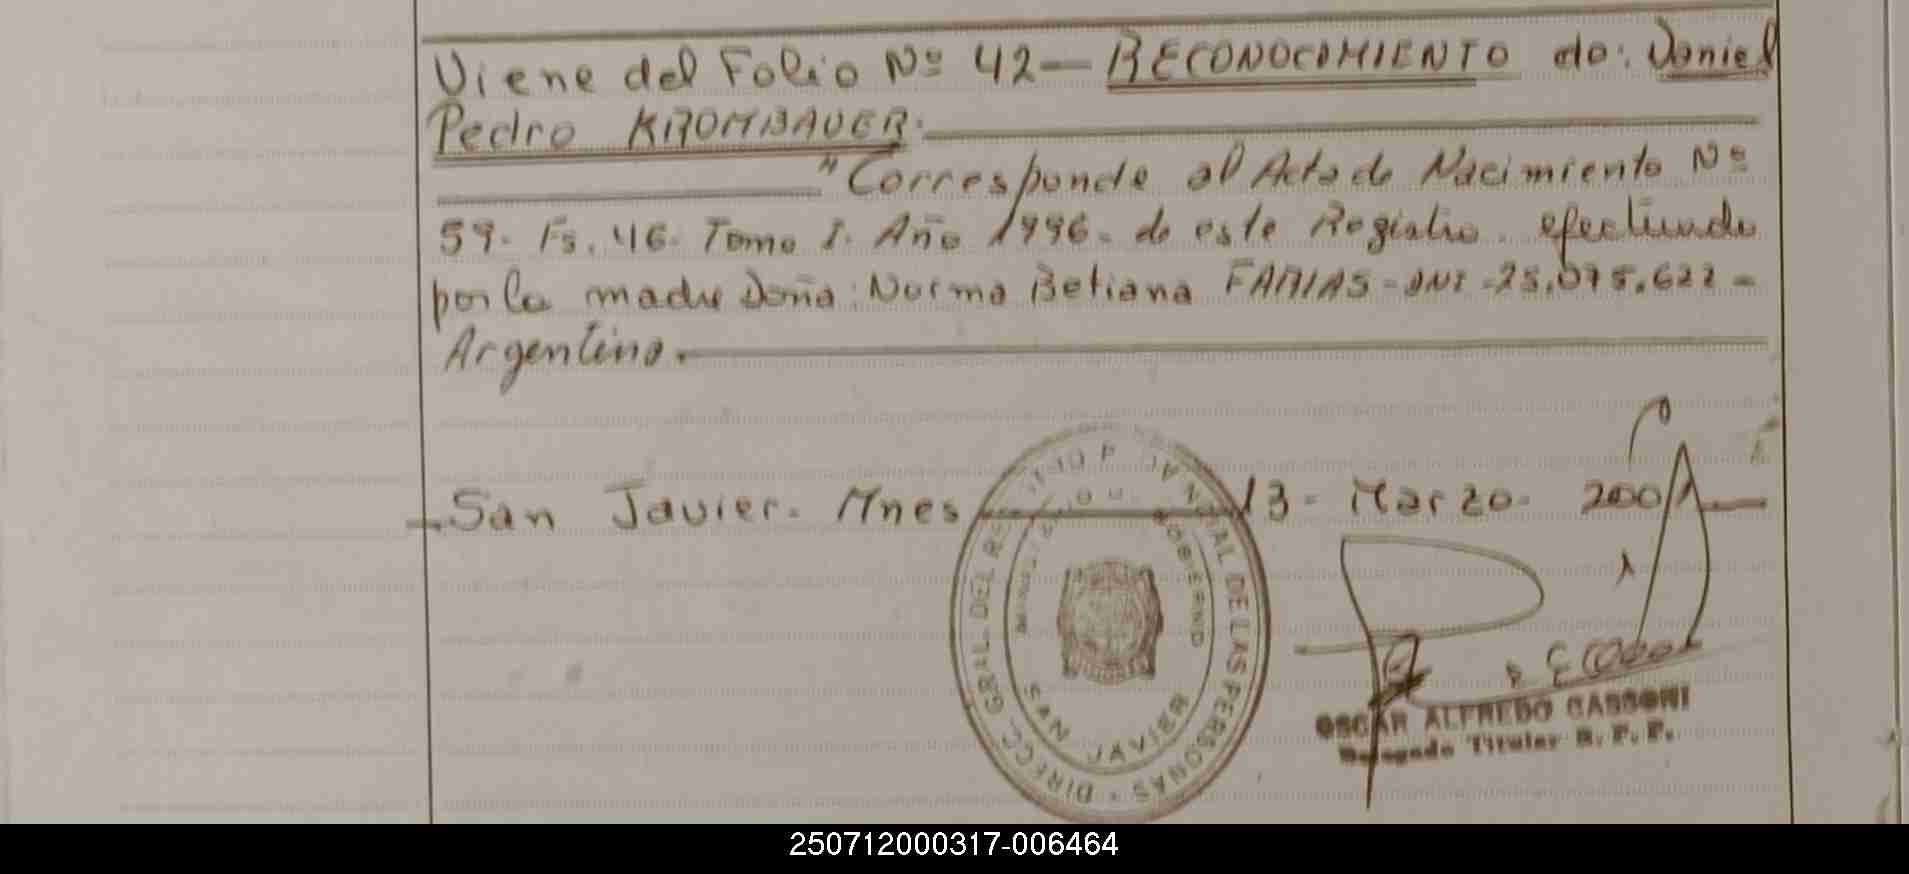 Viene del Folio Nº 42— RECONOCIMIENTO de: Daniel
Pedro KROMBAUER.
"Corresponde al Acta de Nacimiento Nº
59. Fs. 46. Tomo I. Año 1996. de este Registro. efectuado
por la madre Doña: Norma Betiana FARIAS - DNI - 25.075.622 -
Argentina.
San Javier. Mnes 13 - Marzo - 2001
DIRECC. GRAL. DEL DE LAS PERSONAS
GOBIERNO
SAN JAVIER
OSCAR ALFREDO GASSONI
Delegado Titular R. P. P.
250712000317-006464